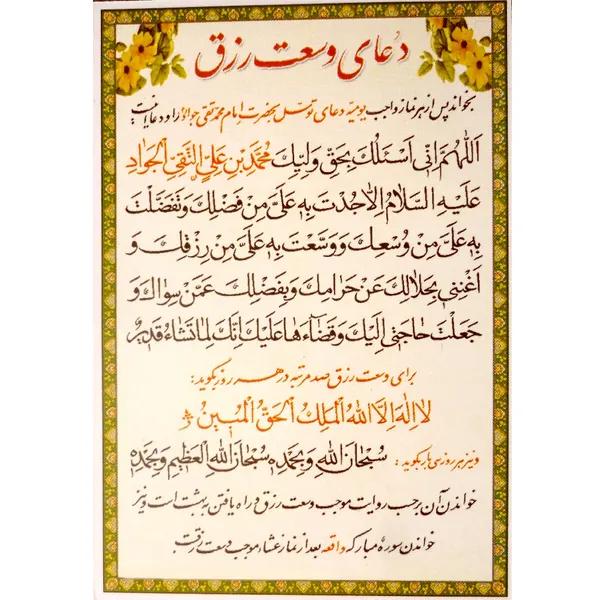 دعای وسعت رزق
بخواند پس از هر نماز واجب یومیّه دعای توسّل بحضرت امام محمد تقی جواد را و دعا اینست
اَللّهُمَّ اِنّی اَسْئَلُكَ بِحَقِّ وَلِیِّكَ مُحَمَّدِ بْنِ عَلِیٍّ التَّقِیِّ الْجَوادِ
عَلَیْهِ السَّلامُ اِلاّ جُدْتَ بِهِ عَلَیَّ مِنْ فَضْلِكَ وَ تَفَضَّلْتَ
بِهِ عَلَیَّ مِنْ وُسْعِكَ وَ وَسَّعْتَ بِهِ عَلَیَّ مِنْ رِزْقِكَ وَ
اَغْنِنی بِحَلالِكَ عَنْ حَرامِكَ وَ بِفَضْلِكَ عَمَّنْ سِوٰاكَ وَ
جَعَلْتَ حاجَتی اِلَیْكَ وَ قَضٰاءَهٰا عَلَیْكَ اِنَّكَ لِمٰا تَشٰاءُ قَدیرٌ
برای وسعت رزق صد مرتبه در هر روز بگوید:
لا اِلهَ اِلاَّ اللهُ الْمَلِكُ الْحَقُّ الْمُبینُ
و نیز هر روز سی بار بگوید: سُبْحٰانَ اللهِ وَ بِحَمْدِهِ سُبْحٰانَ اللهِ الْعَظیمِ وَ بِحَمْدِهِ
خواندن آن برحسب روایت موجب وسعت رزق و راه یافتن به بهشت است و نیز
خواندن سوره مبارکه واقعه بعد از نماز عشاء موجب وسعت رزقست